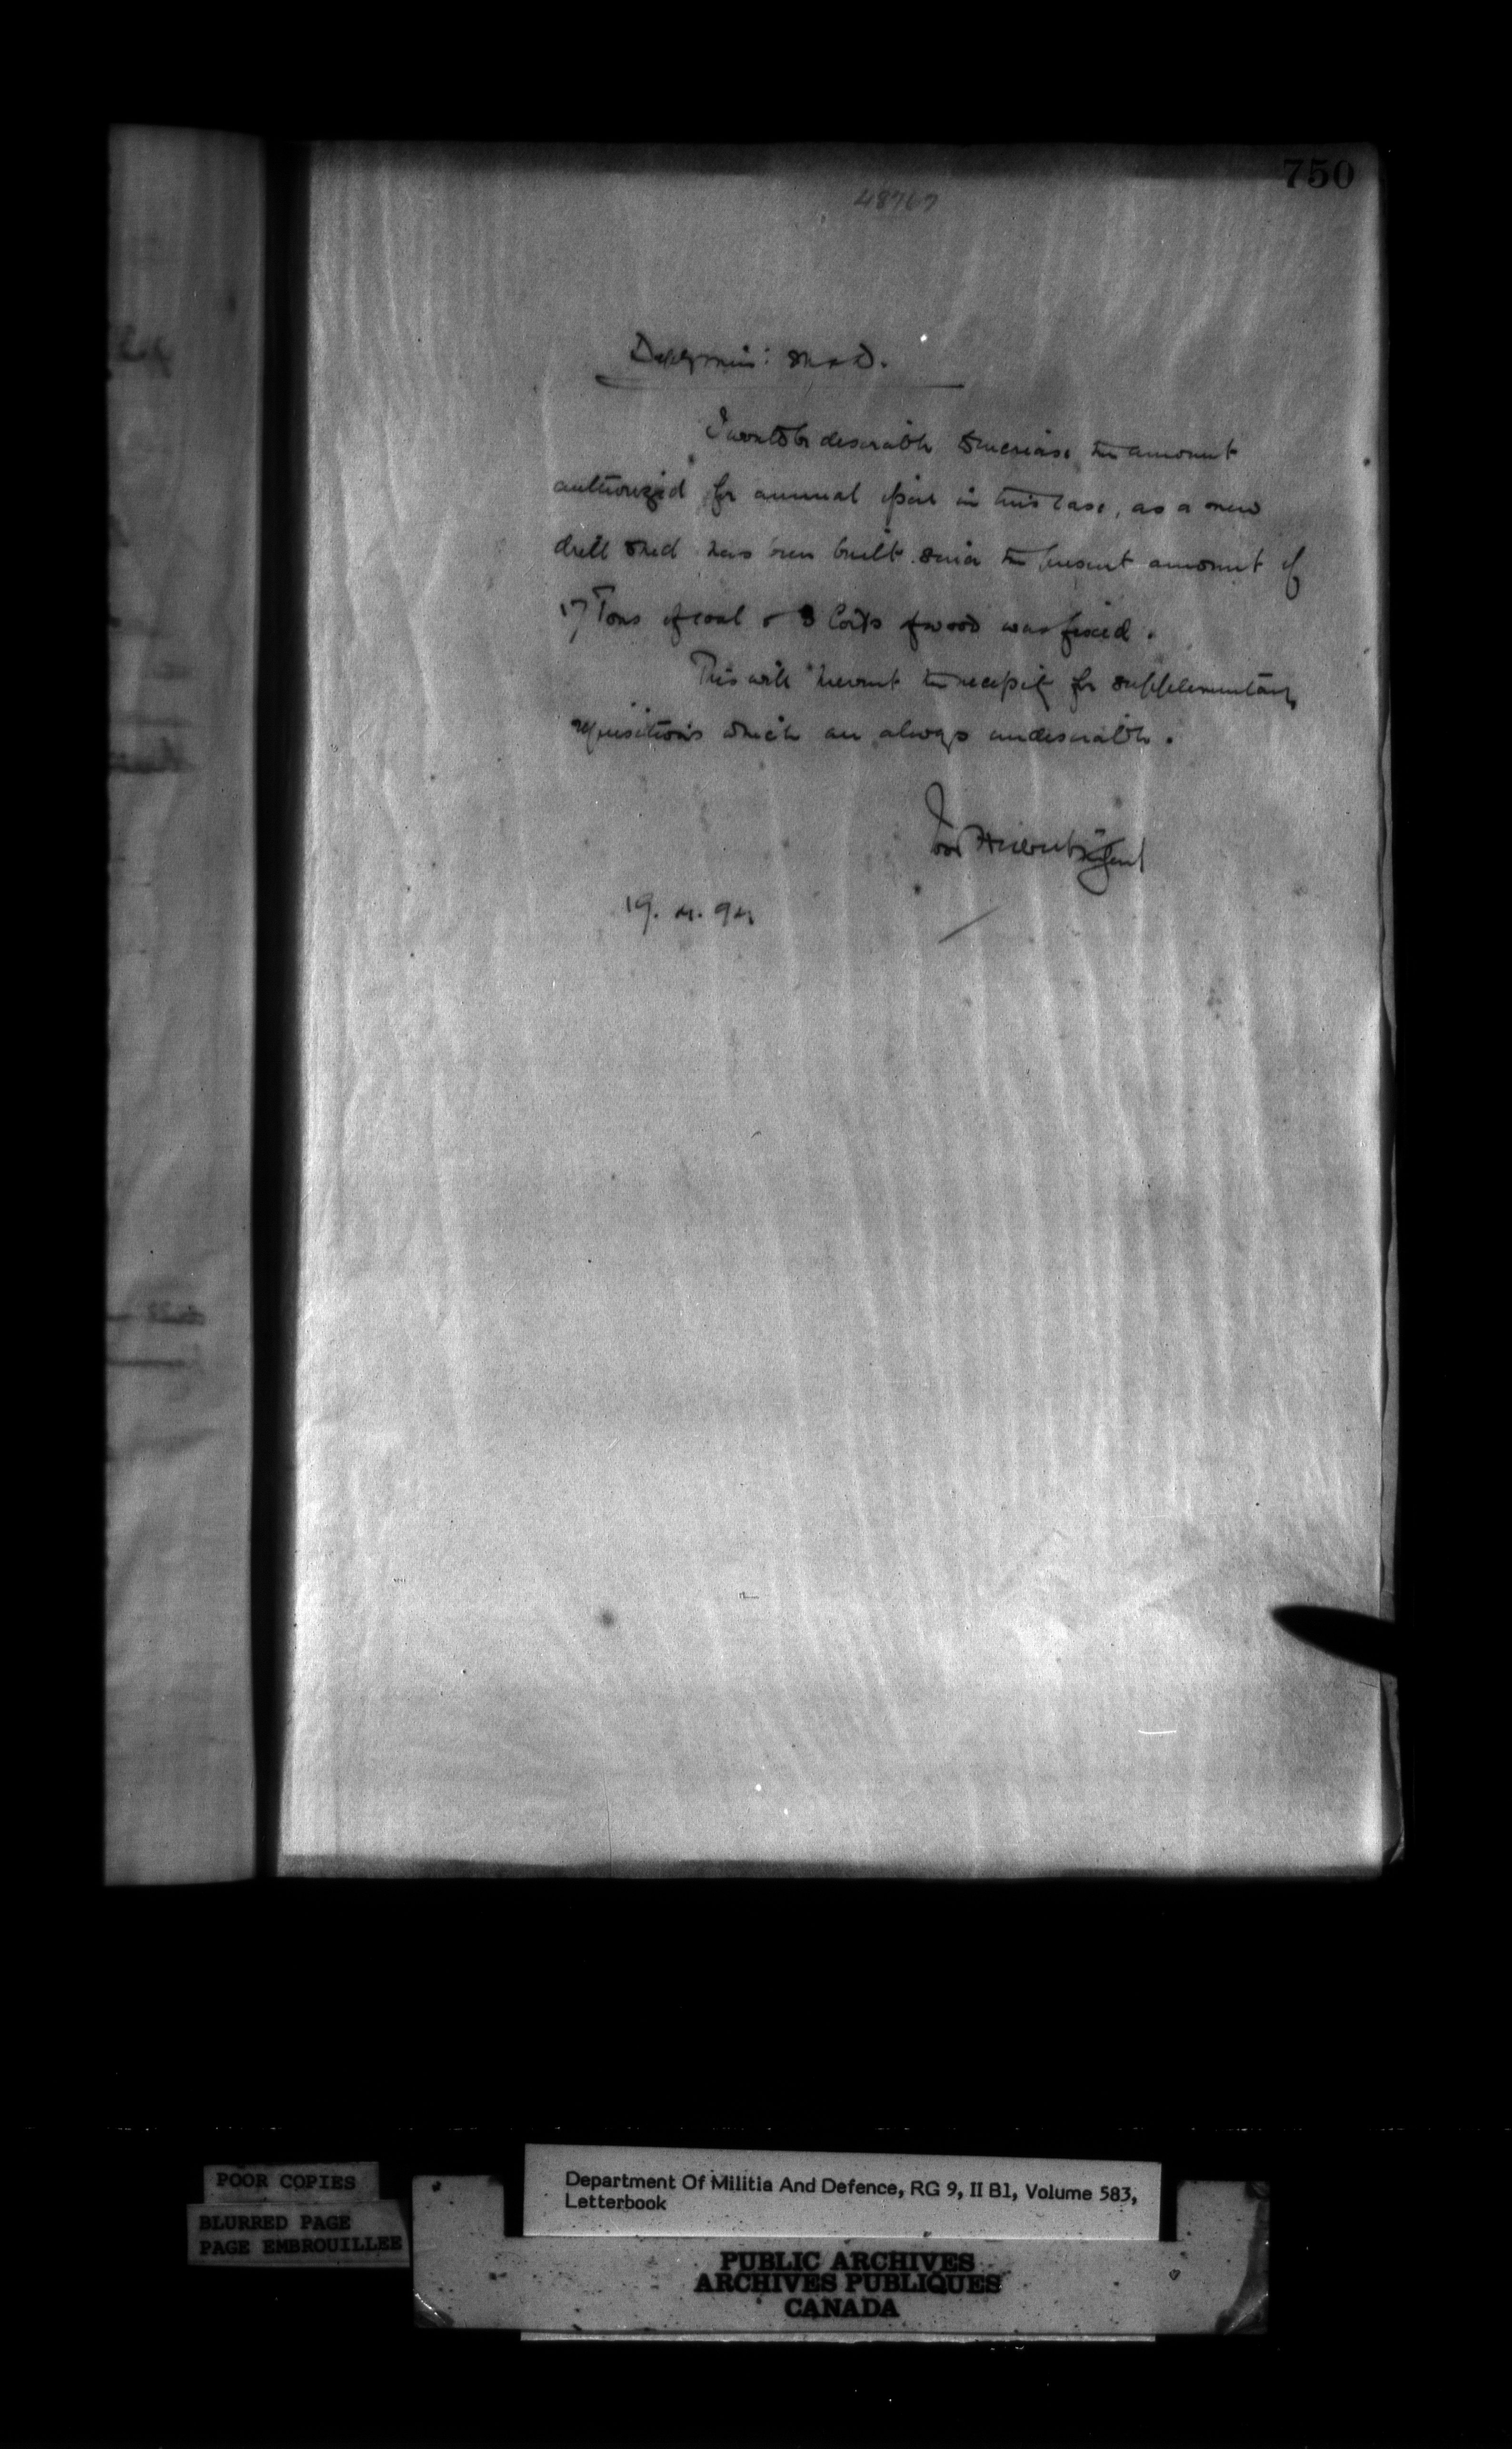 750
48767
Dep. Min: M & D.
I would be desirable to increase the amount
authorized for annual issue in this case, as a new
drill shed has been built since the present amount of
17 Tons of coal & 8 Cords of wood was fixed.
This will prevent the necessity for supplementary
requisitions which are always undesirable.
Ivor Herbert M Genl
19. 4. 94
POOR COPIES
BLURRED PAGE
PAGE EMBROUILLEE
Department Of Militia And Defence, RG 9, II B1, Volume 583,
Letterbook
PUBLIC ARCHIVES
ARCHIVES PUBLIQUES
CANADA